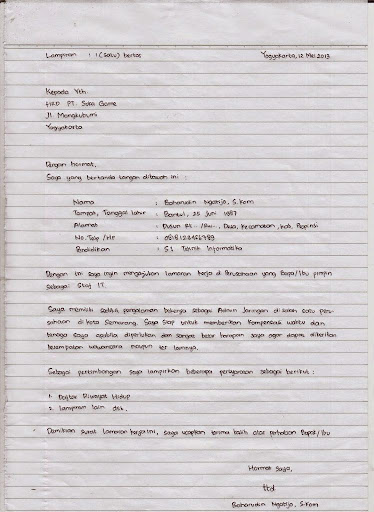 Lampiran : 1 (satu) berkas Yogyakarta, 12 Mei 2013
Kepada Yth.
HRD PT. Suka Game
Jl. Mangkubumi
Yogyakarta
Dengan hormat,
Saya yang bertanda tangan dibawah ini :
Nama : Baharudin Ngatijo, S.Kom
Tempat, Tanggal lahir : Bantul, 25 Juni 1987
Alamat : Dusun Rt.. /Rw.., Desa, Kecamatan, Kab, Propinsi
No. Telp /Hp : 0818123456789
Pendidikan : S1 Teknik Informatika
Dengan ini saya ingin mengajukan lamaran kerja di Perusahaan yang Bapa/Ibu pimpin
sebagai Staf IT.
Saya memiliki sedikit pengalaman bekerja sebagai Admin Jaringan di salah satu peru-
sahaan di kota Semarang. Saya siap untuk memberikan kompensasi waktu dan
tenaga saya apabila diperlukan dan sangat besar harapan saya agar dapat diberikan
kesempatan wawancara maupun tes lainnya.
Sebagai pertimbangan saya lampirkan beberapa persyaratan sebagai berikut :
1. Daftar Riwayat Hidup
2. lampiran lain dsk.
Demikian surat lamaran kerja ini, saya ucapkan terima kasih atas perhatian Bapak/Ibu
Hormat Saya,
ttd
Baharudin Ngatijo, S.Kom